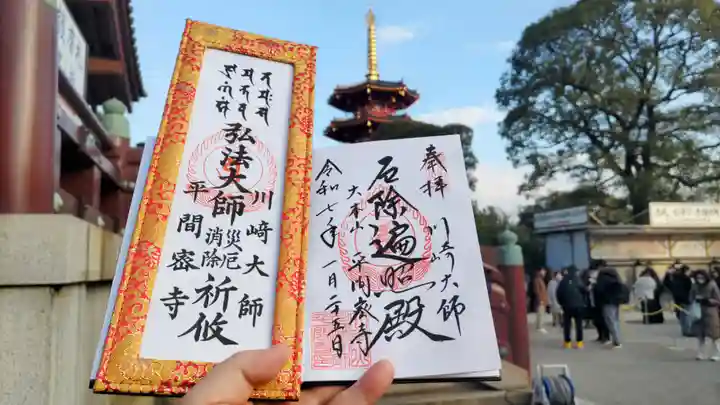 弘法大師
川崎大師
災厄消除
祈攸
平間密寺
奉拝
川崎大師
厄除遍照殿
大本山 平間密寺
令和七年 一月二五日